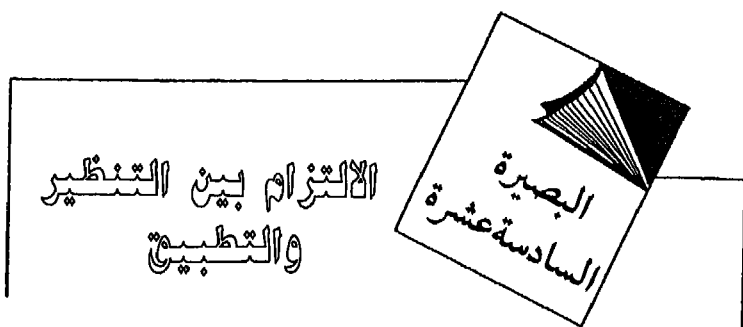 البصيرة
السادسة عشرة
الالتزام بين التنظير
والتطبيق